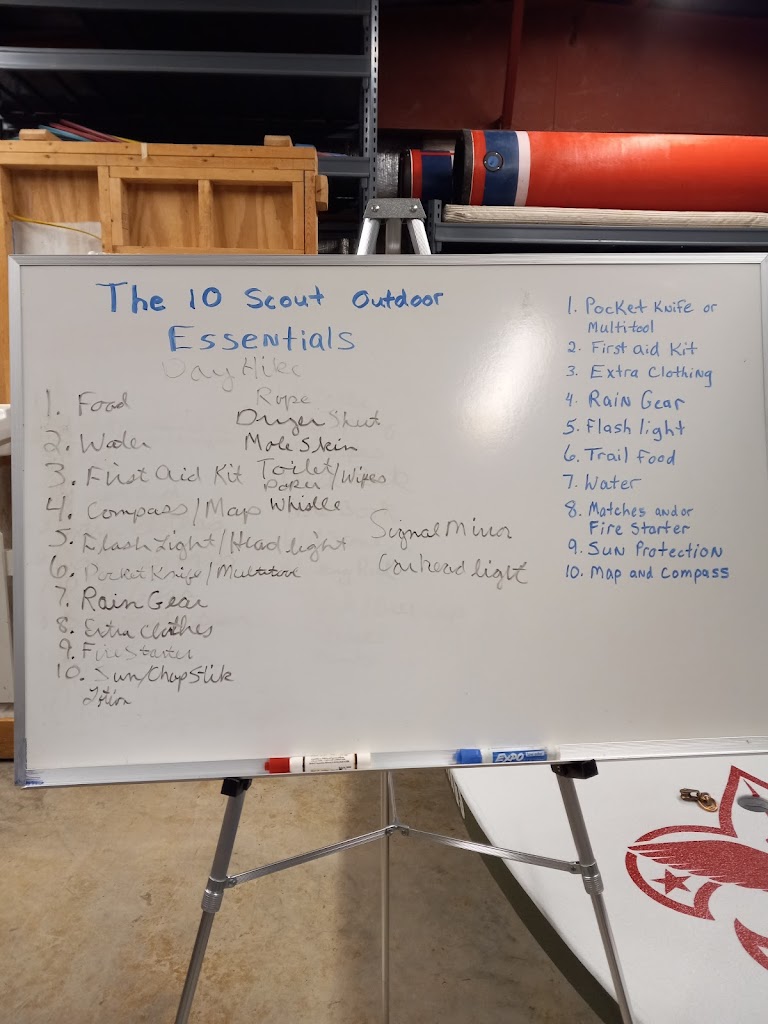 The 10 Scout Outdoor
Essentials
Day Hike
1. Food
2. Water
3. First Aid Kit
4. Compass/Map
5. Flash Light/Head light
6. Pocket Knife/Multitool
7. Rain Gear
8. Extra Clothes
9. Fire Starter
10. Sun/ChapStik
Lotion
Rope
Dryer Sheet
Mole Skin
Toilet/Wipes
Paper
Whistle
Signal Mirror
Car head light
1. Pocket Knife or
Multitool
2. First aid Kit
3. Extra Clothing
4. Rain Gear
5. Flash light
6. Trail Food
7. Water
8. Matches and/or
Fire Starter
9. Sun Protection
10. Map and Compass
EXPO